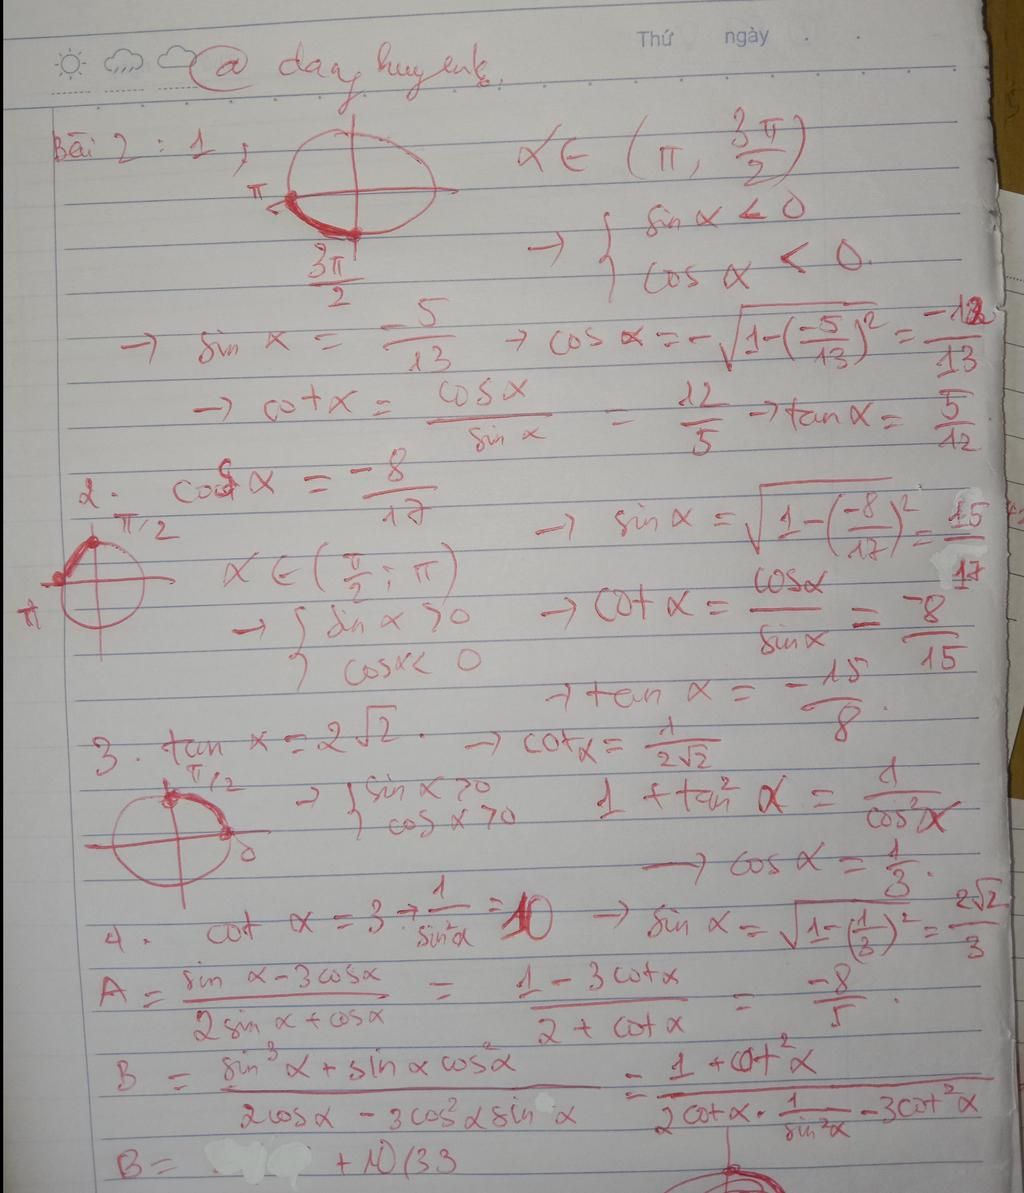 Thứ ngày
@ dang huyenk
Bài 2 : 1, π 3π/2 α ∈ (π, 3π/2)
→ { sin α < 0
cos α < 0.
→ sin α = -5/13 → cos α = -√(1-(-5/13)²) = -12/13
→ cot α = cos α/sin α = 12/5 → tan α = 5/12
2. cos α = -8/17
π/2 → sin α = √(1-(-8/17)²) = 15/17
π α ∈ (π/2; π)
→ { sin α > 0 → cot α = cos α/sin α = -8/15
cos α < 0
→ tan α = -15/8.
3. tan α = 2√2. → cot α = 1/2√2
π/2 0 → { sin α > 0
cos α > 0 1 + tan² α = 1/cos² α
→ cos α = 1/3.
→ sin α = √(1-(1/3)²) = 2√2/3
4. cot α = 3 → 1/sin² α = 10
A = (sin α - 3 cos α)/(2 sin α + cos α) = (1 - 3 cot α)/(2 + cot α) = -8/5.
B = (sin³ α + sin α cos² α)/(2 cos α - 3 cos² α sin α) = (1 + cot² α)/(2 cot α . 1/sin² α - 3 cot² α)
B = + 10/33